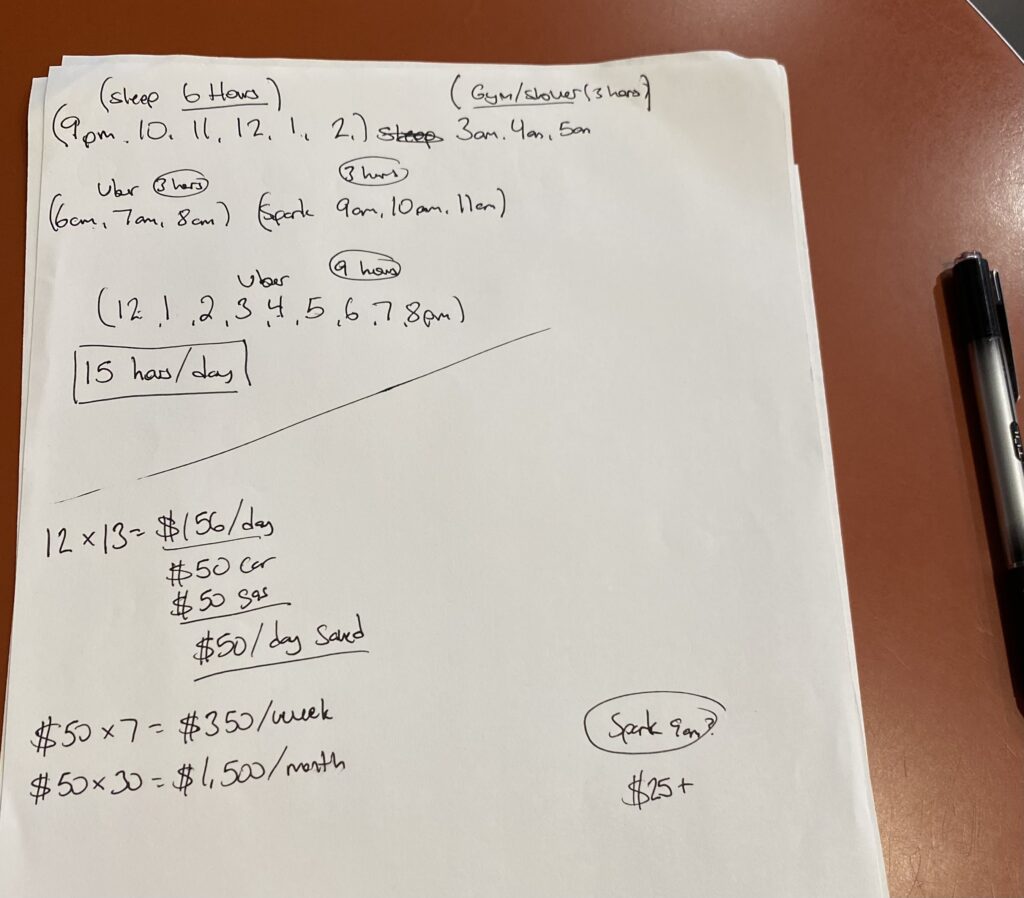 (Sleep 6 Hours)
(Gym/shower (3 hours)
(9pm, 10, 11, 12, 1, 2,) Sleep 3am, 4am, 5am
Uber 3 hours
3 hours
(6am, 7am, 8am) (Spark 9am, 10am, 11am)
Uber 9 hours
(12, 1, 2, 3, 4, 5, 6, 7, 8pm)
15 hours/day
12 x 13 = $156/day
$50 car
$50 gas
$50/day saved
$50 x 7 = $350/week
$50 x 30 = $1,500/month
Spark 9am?
$25+